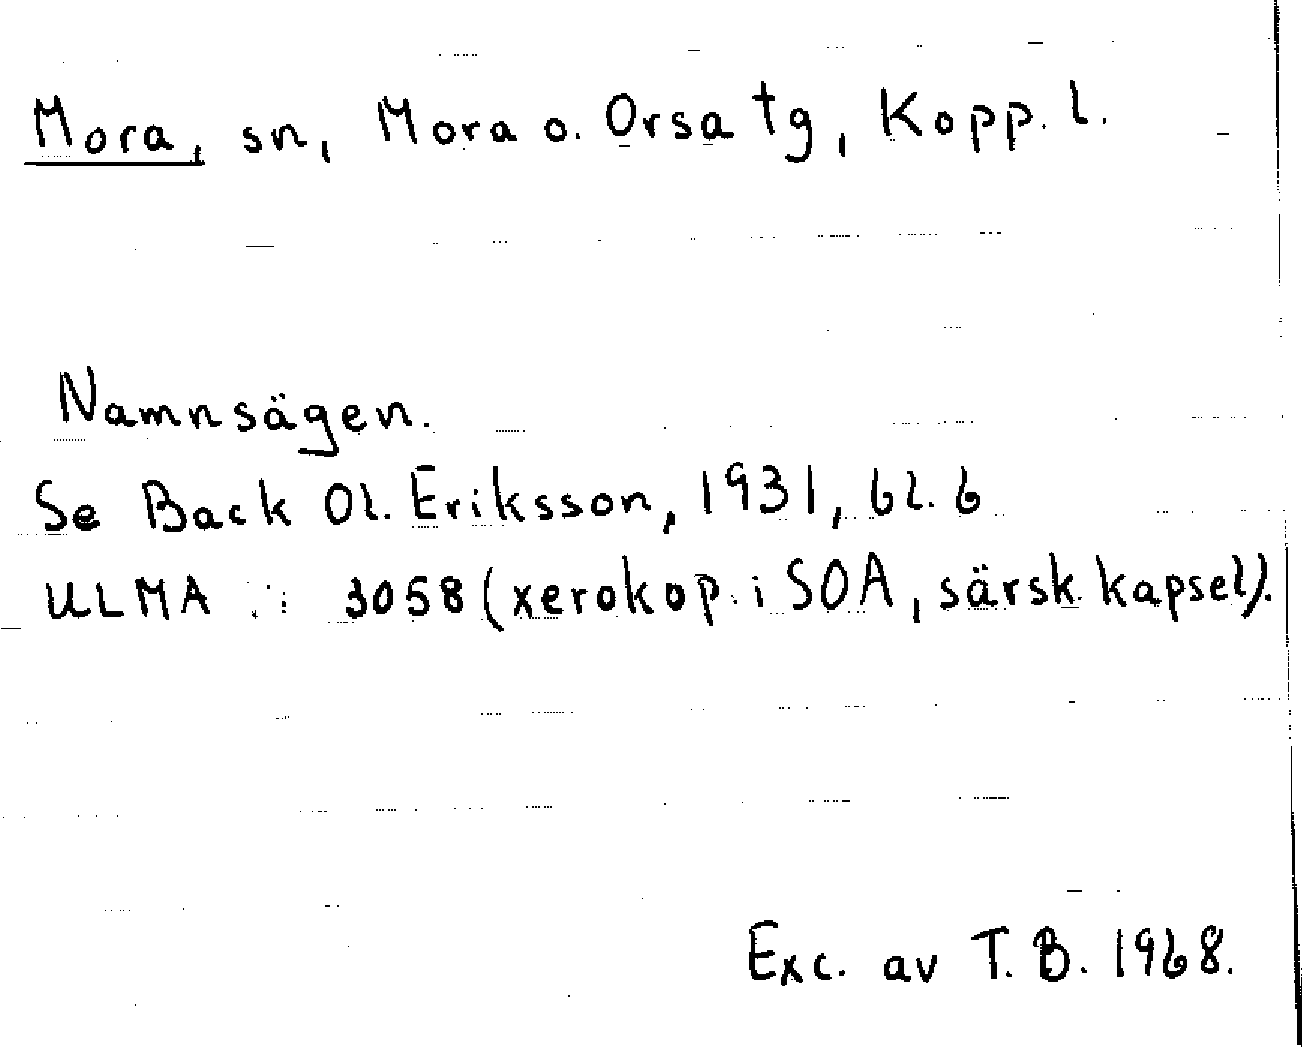 Mora, sn, Mora o. Orsa tg, Kopp. l.
Namnsägen.
Se Back Ol. Eriksson, 1931, bl. 6
ULMA : 3058 (xerokop. i SOA, särsk. kapsel).
Exc. av T. B. 1968.